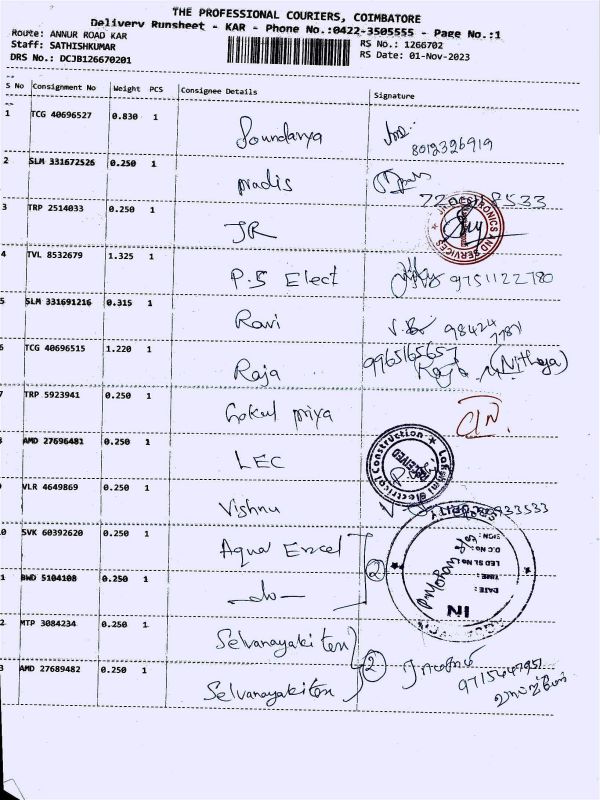 THE PROFESSIONAL COURIERS, COIMBATORE
Delivery Runsheet - KAR - Phone No.:0422-3505555 - Page No.:1
Route: ANNUR ROAD KAR
Staff: SATHISHKUMAR
DRS No.: DCJB126670201
RS No.: 1266702
RS Date: 01-Nov-2023
S No Consignment No Weight PCS Consignee Details Signature
1 TCG 40696527 0.830 1 Soundarya
8012326919
2 SLM 331672526 0.250 1 pradis
8533
3 TRP 2514033 0.250 1 JR
4 TVL 8532679 1.325 1 P.S Elect 9751122780
5 SLM 331691216 0.315 1 Ravi 98424
6 TCG 40696515 1.220 1 Raja 9965165657 (Nithya)
7 TRP 5923941 0.250 1 Gokul priya
8 AMD 27696481 0.250 1 LEC
Lakshmi Electrical Construction
RECEIVED
9 VLR 4649869 0.250 1 Vishnu 933533
10 SVK 60392620 0.250 1 Aqua Excel 2
11 BWD 5104108 0.250 1 -do-
SIGN :
D.C No :
LED SL No :
TIME :
DATE :
IN
12 MTP 3084234 0.250 1 Selvanayaki tex 2
13 AMD 27689482 0.250 1 Selvanayaki tex 9715647951